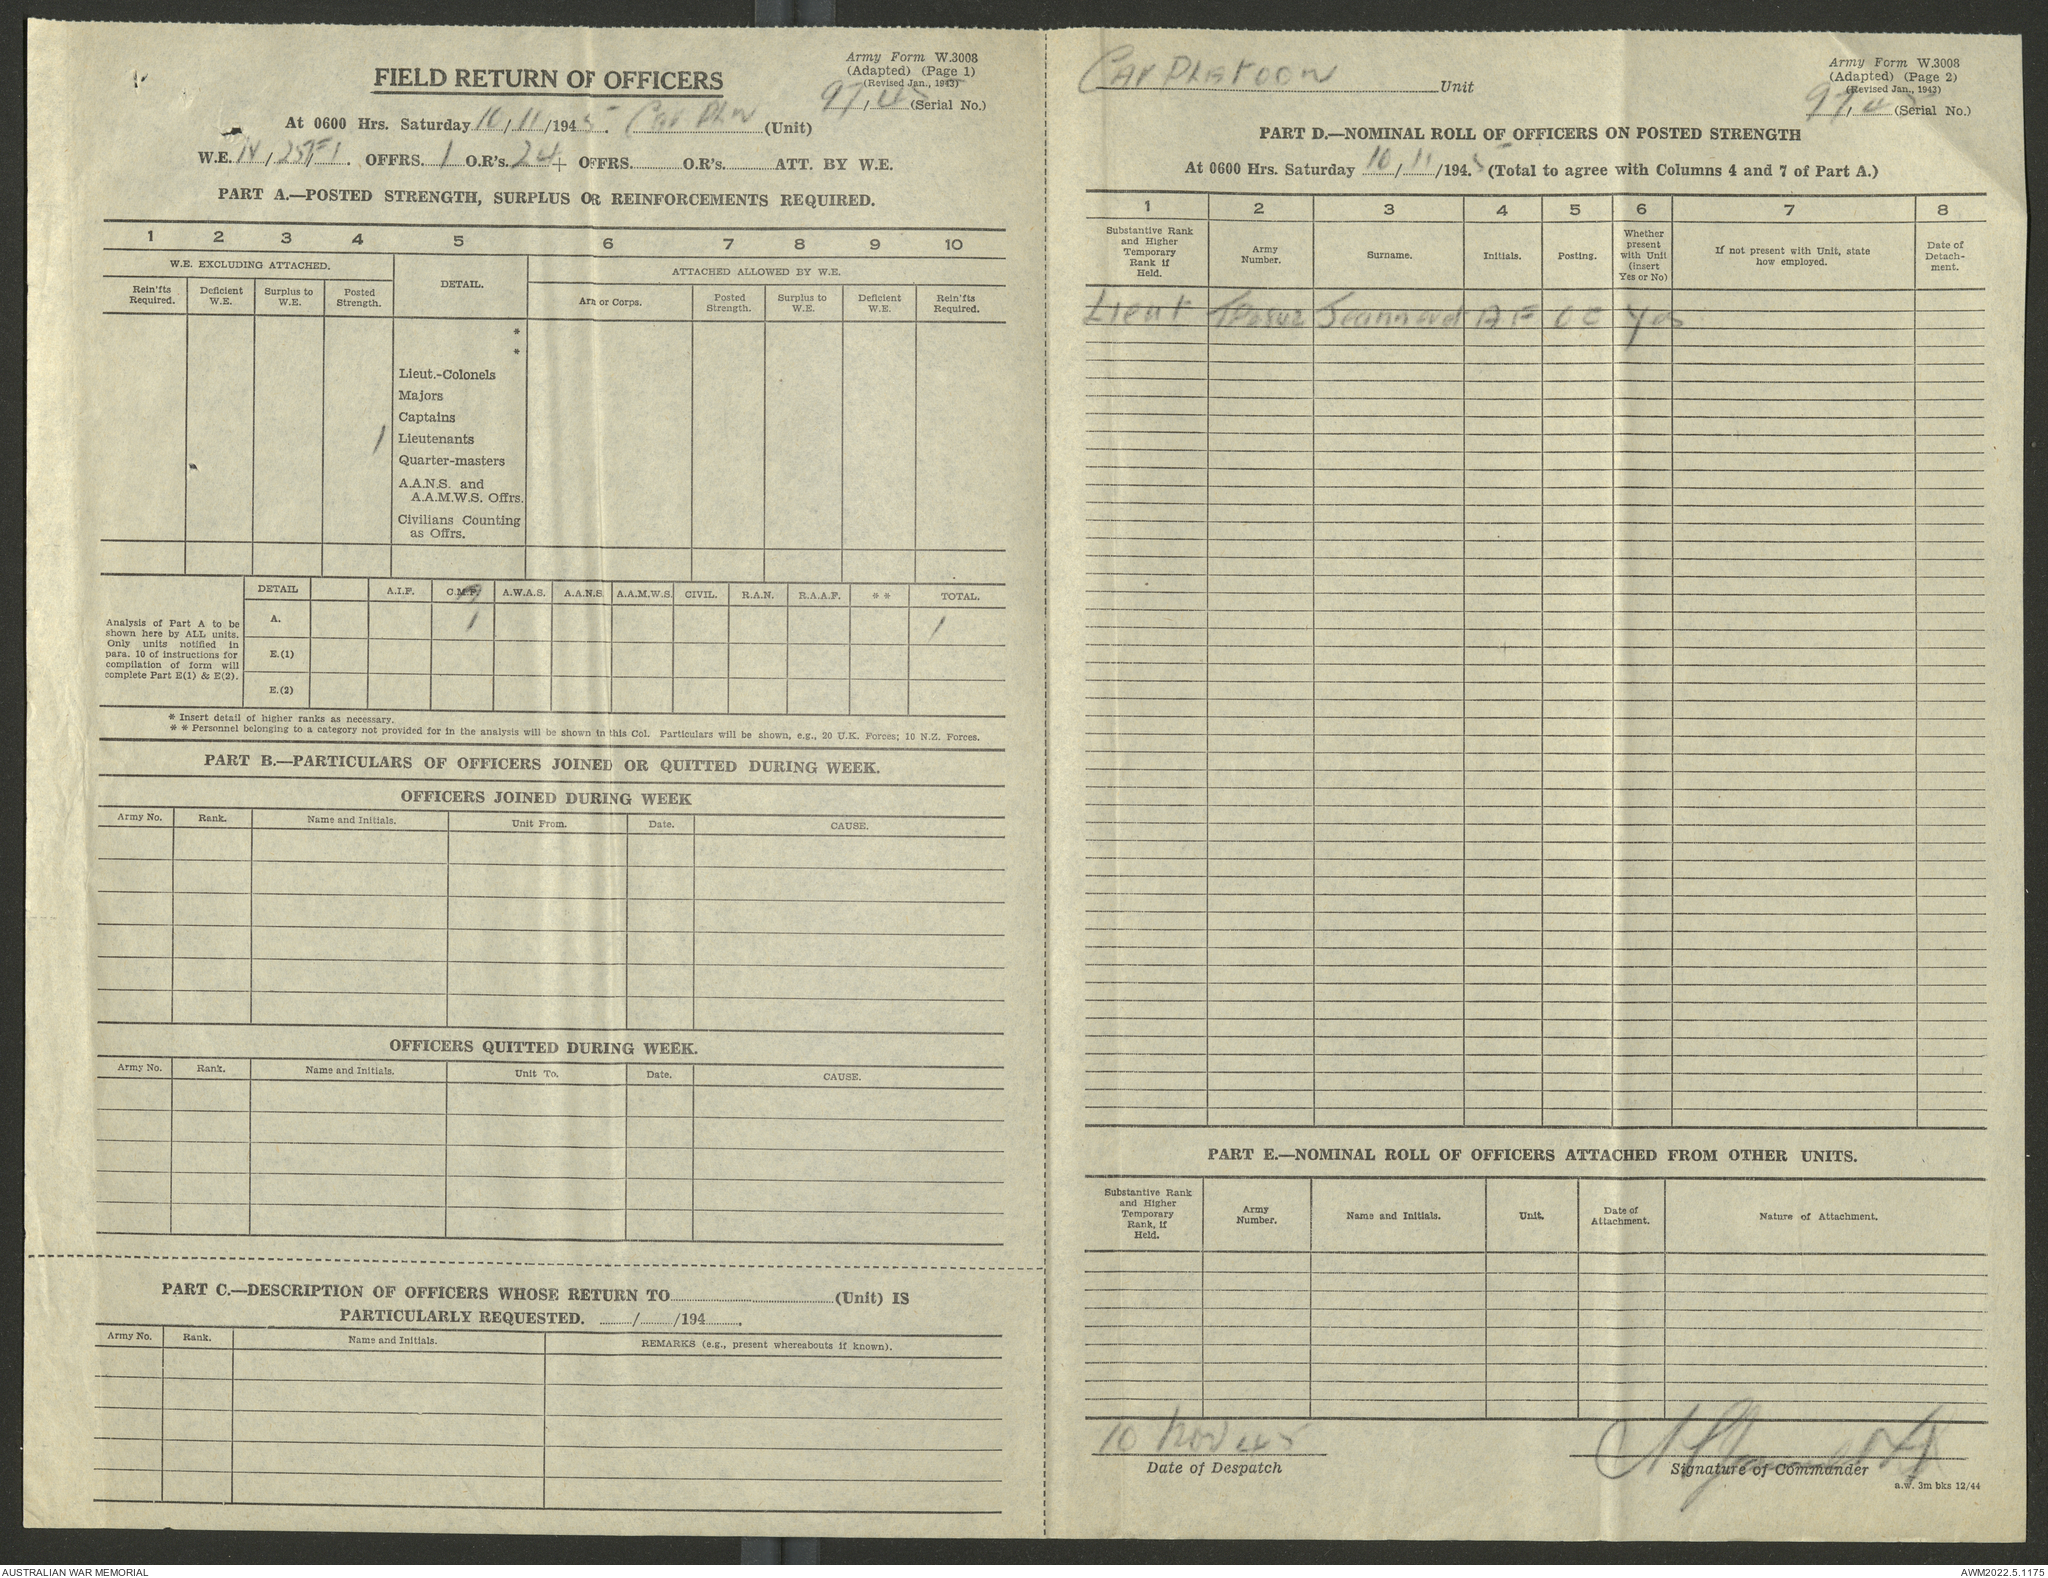 FIELD RETURN OF OFFICERS
Army Form W.3008
(Adapted) (Page 1)
(Revised Jan., 1943)
97/45 (Serial No.)
At 0600 Hrs. Saturday 10/11/1945. Car Pltn (Unit)
W.E. IV/ OFFRS. 1 O.R's. 24 + OFFRS. O.R's. ATT. BY W.E.
PART A.—POSTED STRENGTH, SURPLUS OR REINFORCEMENTS REQUIRED.
1 2 3 4 5 6 7 8 9 10
W.E. EXCLUDING ATTACHED. DETAIL. ATTACHED ALLOWED BY W.E.
Rein'fts Required. Deficient W.E. Surplus to W.E. Posted Strength. Arm or Corps. Posted Strength. Surplus to W.E. Deficient W.E. Rein'fts Required.
*
*
Lieut.-Colonels
Majors
Captains
1 Lieutenants
Quarter-masters
A.A.N.S. and
A.A.M.W.S. Offrs.
Civilians Counting
as Offrs.
DETAIL A.I.F. C.M.F. A.W.A.S. A.A.N.S. A.A.M.W.S. CIVIL. R.A.N. R.A.A.F. * * TOTAL.
Analysis of Part A to be
shown here by ALL units.
Only units notified in
para. 10 of instructions for
compilation of form will
complete Part E(1) & E(2).
A. 1 1
E.(1)
E.(2)
* Insert detail of higher ranks as necessary.
* * Personnel belonging to a category not provided for in the analysis will be shown in this Col. Particulars will be shown, e.g., 20 U.K. Forces; 10 N.Z. Forces.
PART B.—PARTICULARS OF OFFICERS JOINED OR QUITTED DURING WEEK.
OFFICERS JOINED DURING WEEK
Army No. Rank. Name and Initials. Unit From. Date. CAUSE.
OFFICERS QUITTED DURING WEEK.
Army No. Rank. Name and Initials. Unit To. Date. CAUSE.
PART C.—DESCRIPTION OF OFFICERS WHOSE RETURN TO (Unit) IS
PARTICULARLY REQUESTED. / /194 .
Army No. Rank. Name and Initials. REMARKS (e.g., present whereabouts if known).
Car Platoon Unit
Army Form W.3008
(Adapted) (Page 2)
(Revised Jan., 1943)
97/45 (Serial No.)
PART D.—NOMINAL ROLL OF OFFICERS ON POSTED STRENGTH
At 0600 Hrs. Saturday 10/11/1945 (Total to agree with Columns 4 and 7 of Part A.)
1 2 3 4 5 6 7 8
Substantive Rank and Higher Temporary Rank if Held. Army Number. Surname. Initials. Posting. Whether present with Unit (insert Yes or No) If not present with Unit, state how employed. Date of Detach-ment.
Lieut A F OC Yes
PART E.—NOMINAL ROLL OF OFFICERS ATTACHED FROM OTHER UNITS.
Substantive Rank and Higher Temporary Rank, if Held. Army Number. Name and Initials. Unit. Date of Attachment. Nature of Attachment.
10 Nov 45
Date of Despatch
Signature of Commander
a.w. 3m bks 12/44
AUSTRALIAN WAR MEMORIAL
AWM2022.5.1175